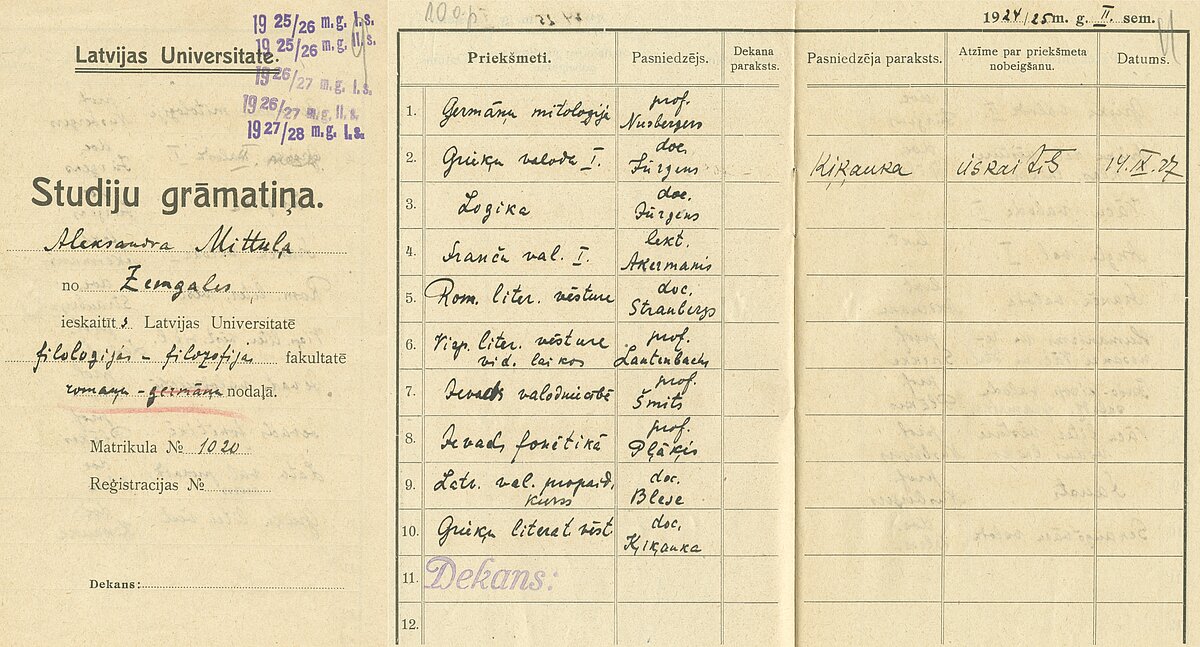 Latvijas Universitate.
19 25/26 m.g. I.s.
19 25/26 m.g. II.s.
19 26/27 m.g. I.s.
19 26/27 m.g. II.s.
19 27/28 m.g. I.s.
Studiju grāmatiņa.
Aleksandra Mittuļa
no Zemgales
ieskaitīts Latvijas Universitatē
filoloģijas - filozofijas fakultatē
romaņu - germāņu nodaļā.
Matrikula № 1020
Reģistracijas №
Dekans:
1924/25 m. g. II. sem.
Priekšmeti. Pasniedzējs. Dekana paraksts. Pasniedzēja paraksts. Atzīme par priekšmeta nobeigšanu. Datums.
1. Germāņu mitoloģija prof. Nusbergers
2. Grieķu valoda I. doc. Jürgens Ķiķauka ieskaitīts 14.IX.27
3. Logika doc. Jürgens
4. Franču val. I. lekt. Akermanis
5. Rom. liter. vēsture doc. Straubergs
6. Visp. liter. vēsture vid. laikos prof. Lautenbachs
7. Ievads valodniecībē prof. Šmits
8. Ievads fonētikā prof. Pļāķis
9. Latv. val. propaid. kurss doc. Blese
10. Grieķu literat. vēst doc. Ķiķauka
11. Dekans:
12.